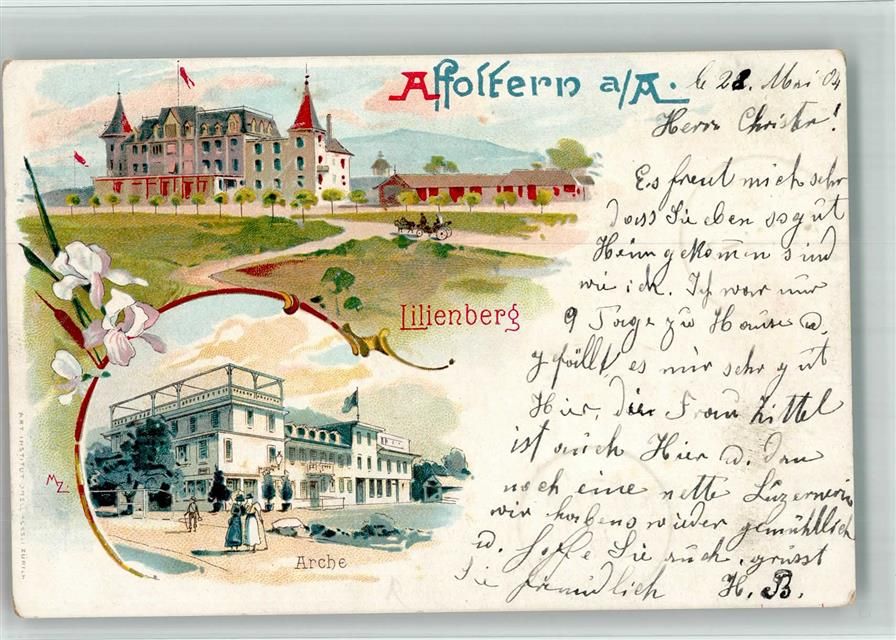 Affoltern a/A.
d. 28. Mai 04
Herrn Christen!
Es freut mich sehr
dass Sie eben so gut
Heimgekommen sind
wie ich. Ich war nur
9 Tage zu Hause u.
gefällt es mir sehr gut
Hier, die Frau Zittel
ist auch Hier u. dan
noch eine nette Luzernerin
wir habens wieder gemühtlich
u. hoffe Sie auch, grüsst
Sie freundlich H. B.
Lilienberg
Arche
MZ.
ART. INSTITUT ORELL FÜSSLI ZÜRICH